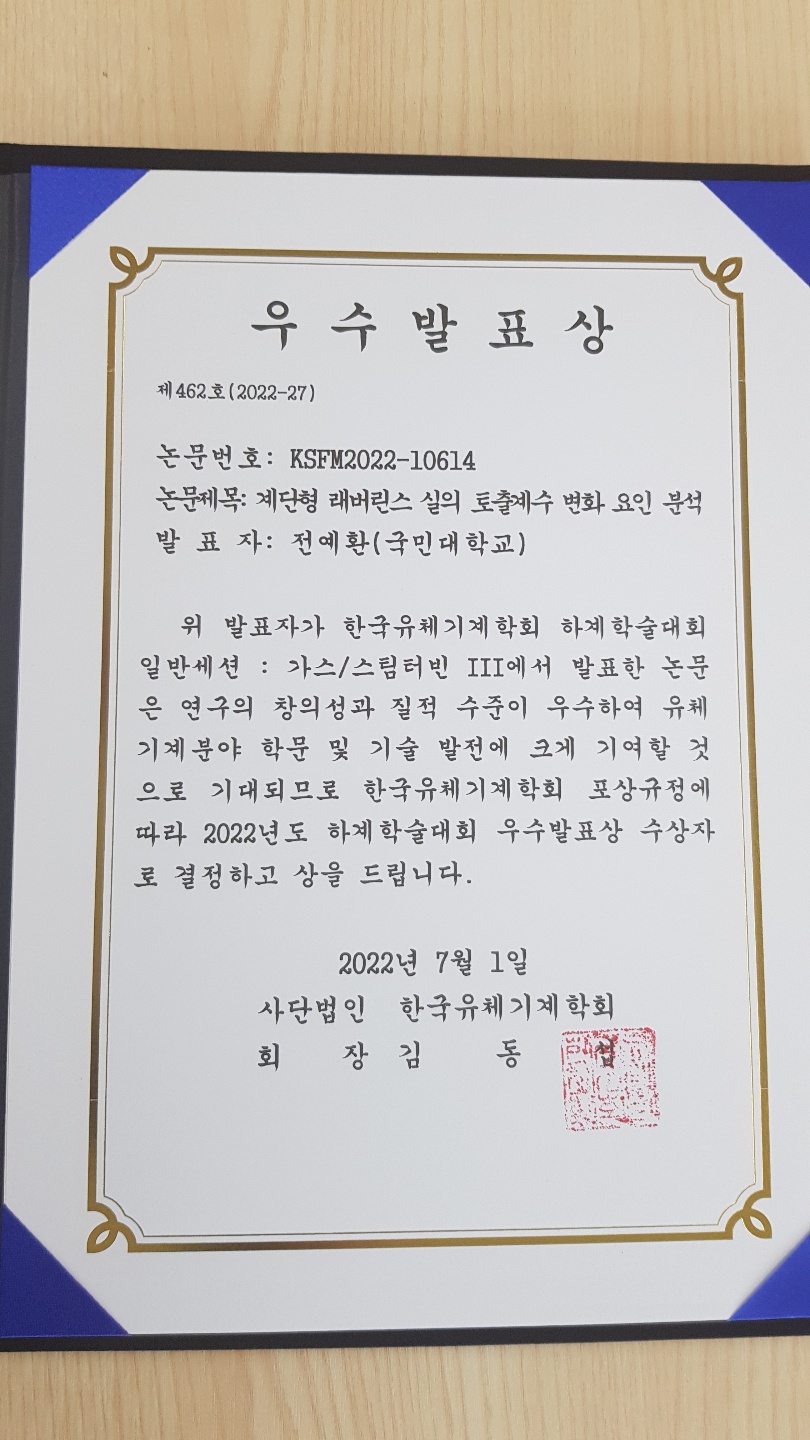 우 수 발 표 상
제462호(2022-27)
논문번호: KSFM2022-10614
논문제목: 계단형 래버린스 실의 토출계수 변화 요인 분석
발 표 자: 전예환(국민대학교)
위 발표자가 한국유체기계학회 하계학술대회
일반세션 : 가스/스팀터빈 III에서 발표한 논문
은 연구의 창의성과 질적 수준이 우수하여 유체
기계분야 학문 및 기술 발전에 크게 기여할 것
으로 기대되므로 한국유체기계학회 포상규정에
따라 2022년도 하계학술대회 우수발표상 수상자
로 결정하고 상을 드립니다.
2022년 7월 1일
사단법인 한국유체기계학회
회 장 김 동 섭